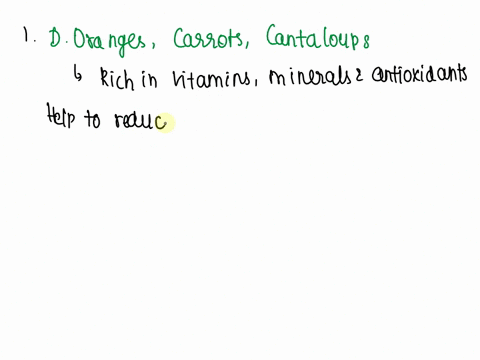 1. D. Oranges, Carrots, Cantaloups
↳ Rich in vitamins, minerals & antioxidants
Help to reduc